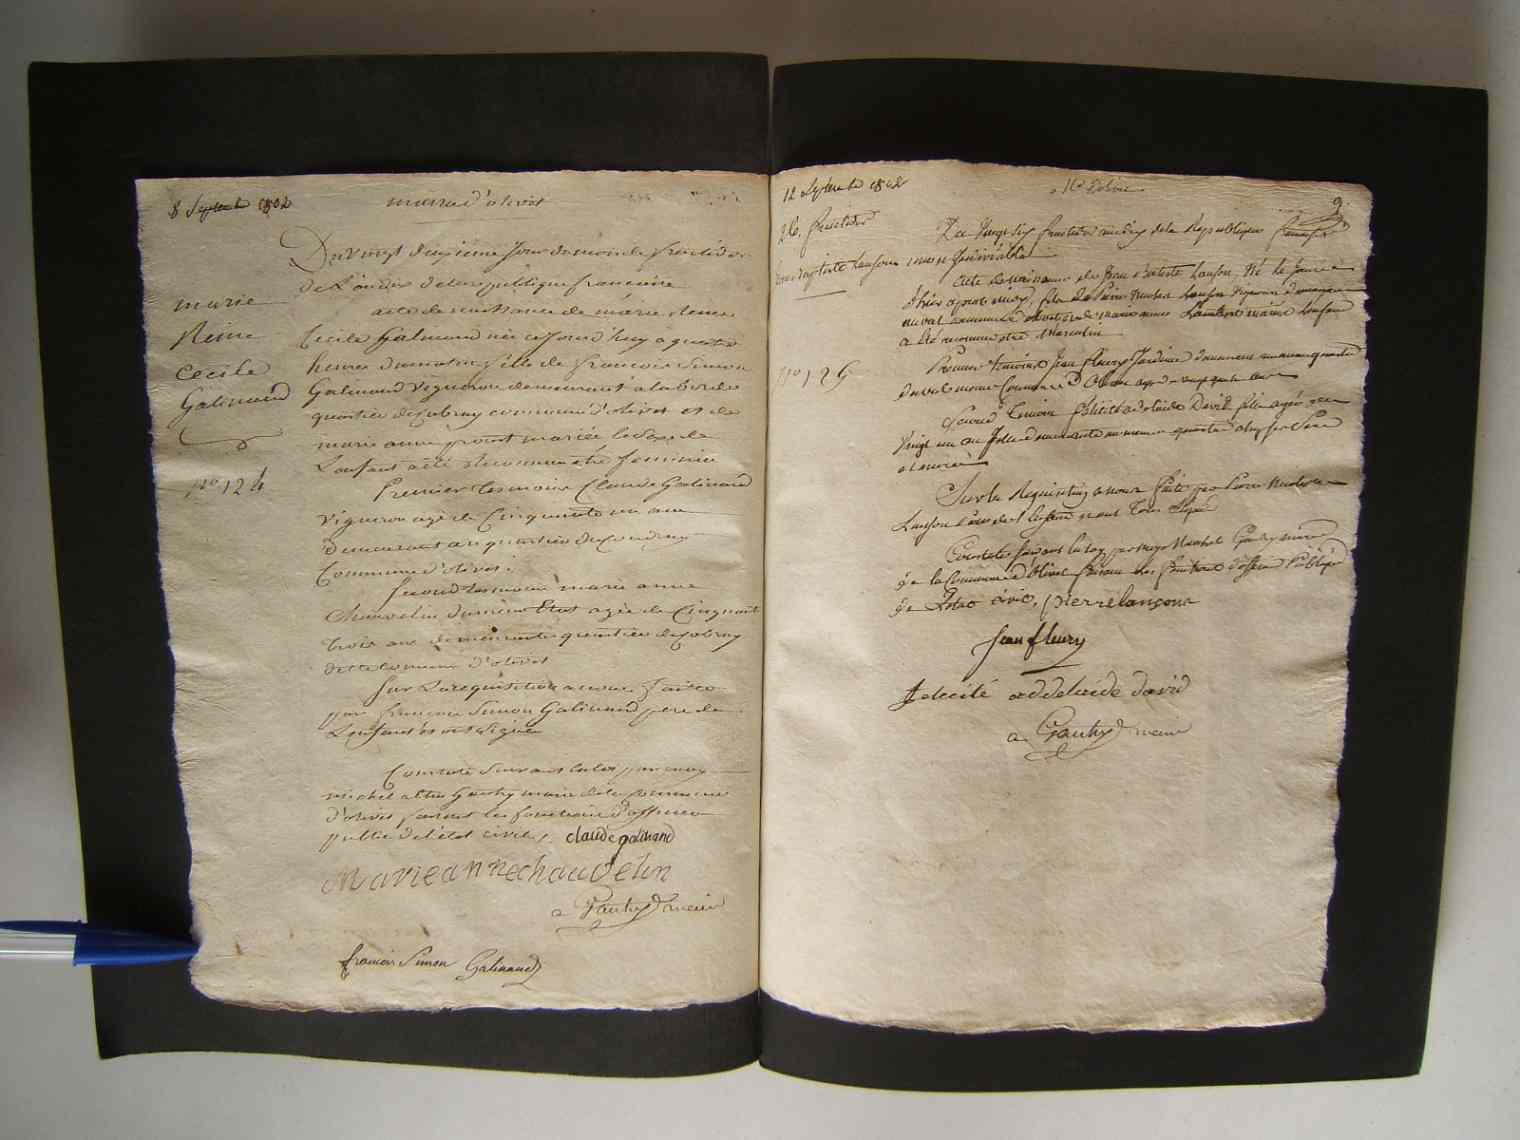 8 Septembre 1802
mairie d'olivet
Du vingt deuxième Jour du mois de fructidor
De L'an dix de la republique francaise
acte de naissance de marie Reine
Cecile Galimard née ce Jourd'huy a quatre
heures du matin fille de francois Simon
Galimard vigneron demeurant a la borde
quartier de commune d'olivet et de
marie anne prout mariée le sexe de
L'enfant a été reconnu etre feminin
Premier tesmoin Claude Galimard
Vigneron agé de Cinquante un an
Demeurant au quartier du Coudray
Commune d'olivet
Second tesmoin marie anne
Chauvelin Du même Etat agée de Cinquante
trois ans demeurante quartier de
dite commune d'olivet
Sur La requisition a nous faite
par francois Simon Galimard pere de
L'enfant et ont Signé
Constaté Suivant la loi par moy
michel Gauthy maire de la commune
d'olivet faisant les fonctions d'officier
public de l'état civil, claude galimard
Marie anne chauvelin
a Gauthy maire
francois Simon Galimard
marie
Reine
Cecile
Galimard
No 124
12 Septembre 1802
Me Dolivet
9.
26. fructidor
Jean Baptiste Lanson
No 125
Du Vingt Six fructidor an dix de la Republique francoise
une et Indivisible
Acte de naissance de Jean Batiste Lanson, Né le Jour
d'hier a midy, fils de Pierre Lanson Vigneron demeurant
au val commune d'olivet et de marie anne Lambert mariés L'enfant
a été reconnu etre Masculin
Premier temoin Jean fleury Jardinier demeurant quartier
du val même Commune D'Olivet agé de ans
Second Temoin félicité adelaide David fille agée de
Vingt un an demeurante quartier
Sur la Requisition a nous faite par Pierre
Lanson Pere de l'enfant et ont Tous Signé
Constaté suivant la loy par moy Michel Gauthy maire
de la Commune d'Olivet faisant les fonctions d'officier Public
de L'état civil, pierre lançons
Jean fleury
felecité addelaide david
a Gauthy maire